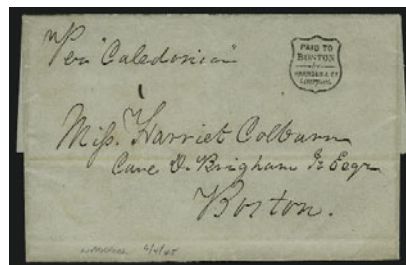 Per "Caledonia"
PAID TO
BOSTON
BY
HARNDEN & Co
LIVERPOOL
Miss. Harriet Colburn
Care D. Brigham Jr Esqr
Boston.